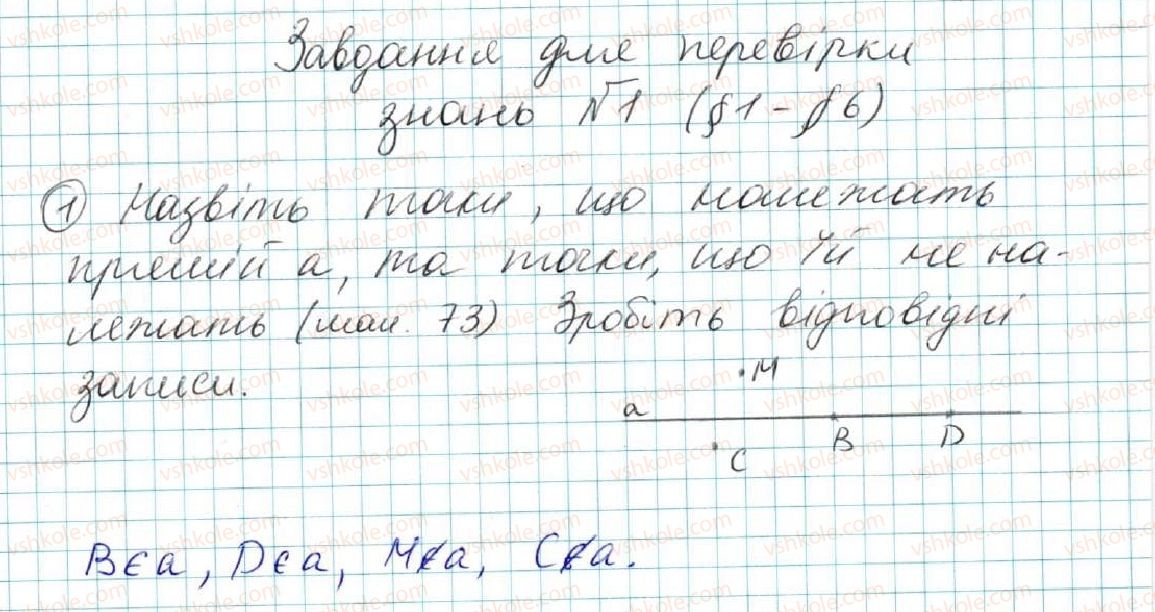 Завдання для перевірки
знань №1 (§1 - §6)
1 Назвіть точки, що належать
прямій a, та точки, що їй не на-
лежать (мал. 73) Зробіть відповідні
записи.
M
a
B D
C
B∈a, D∈a, M∉a, C∉a.